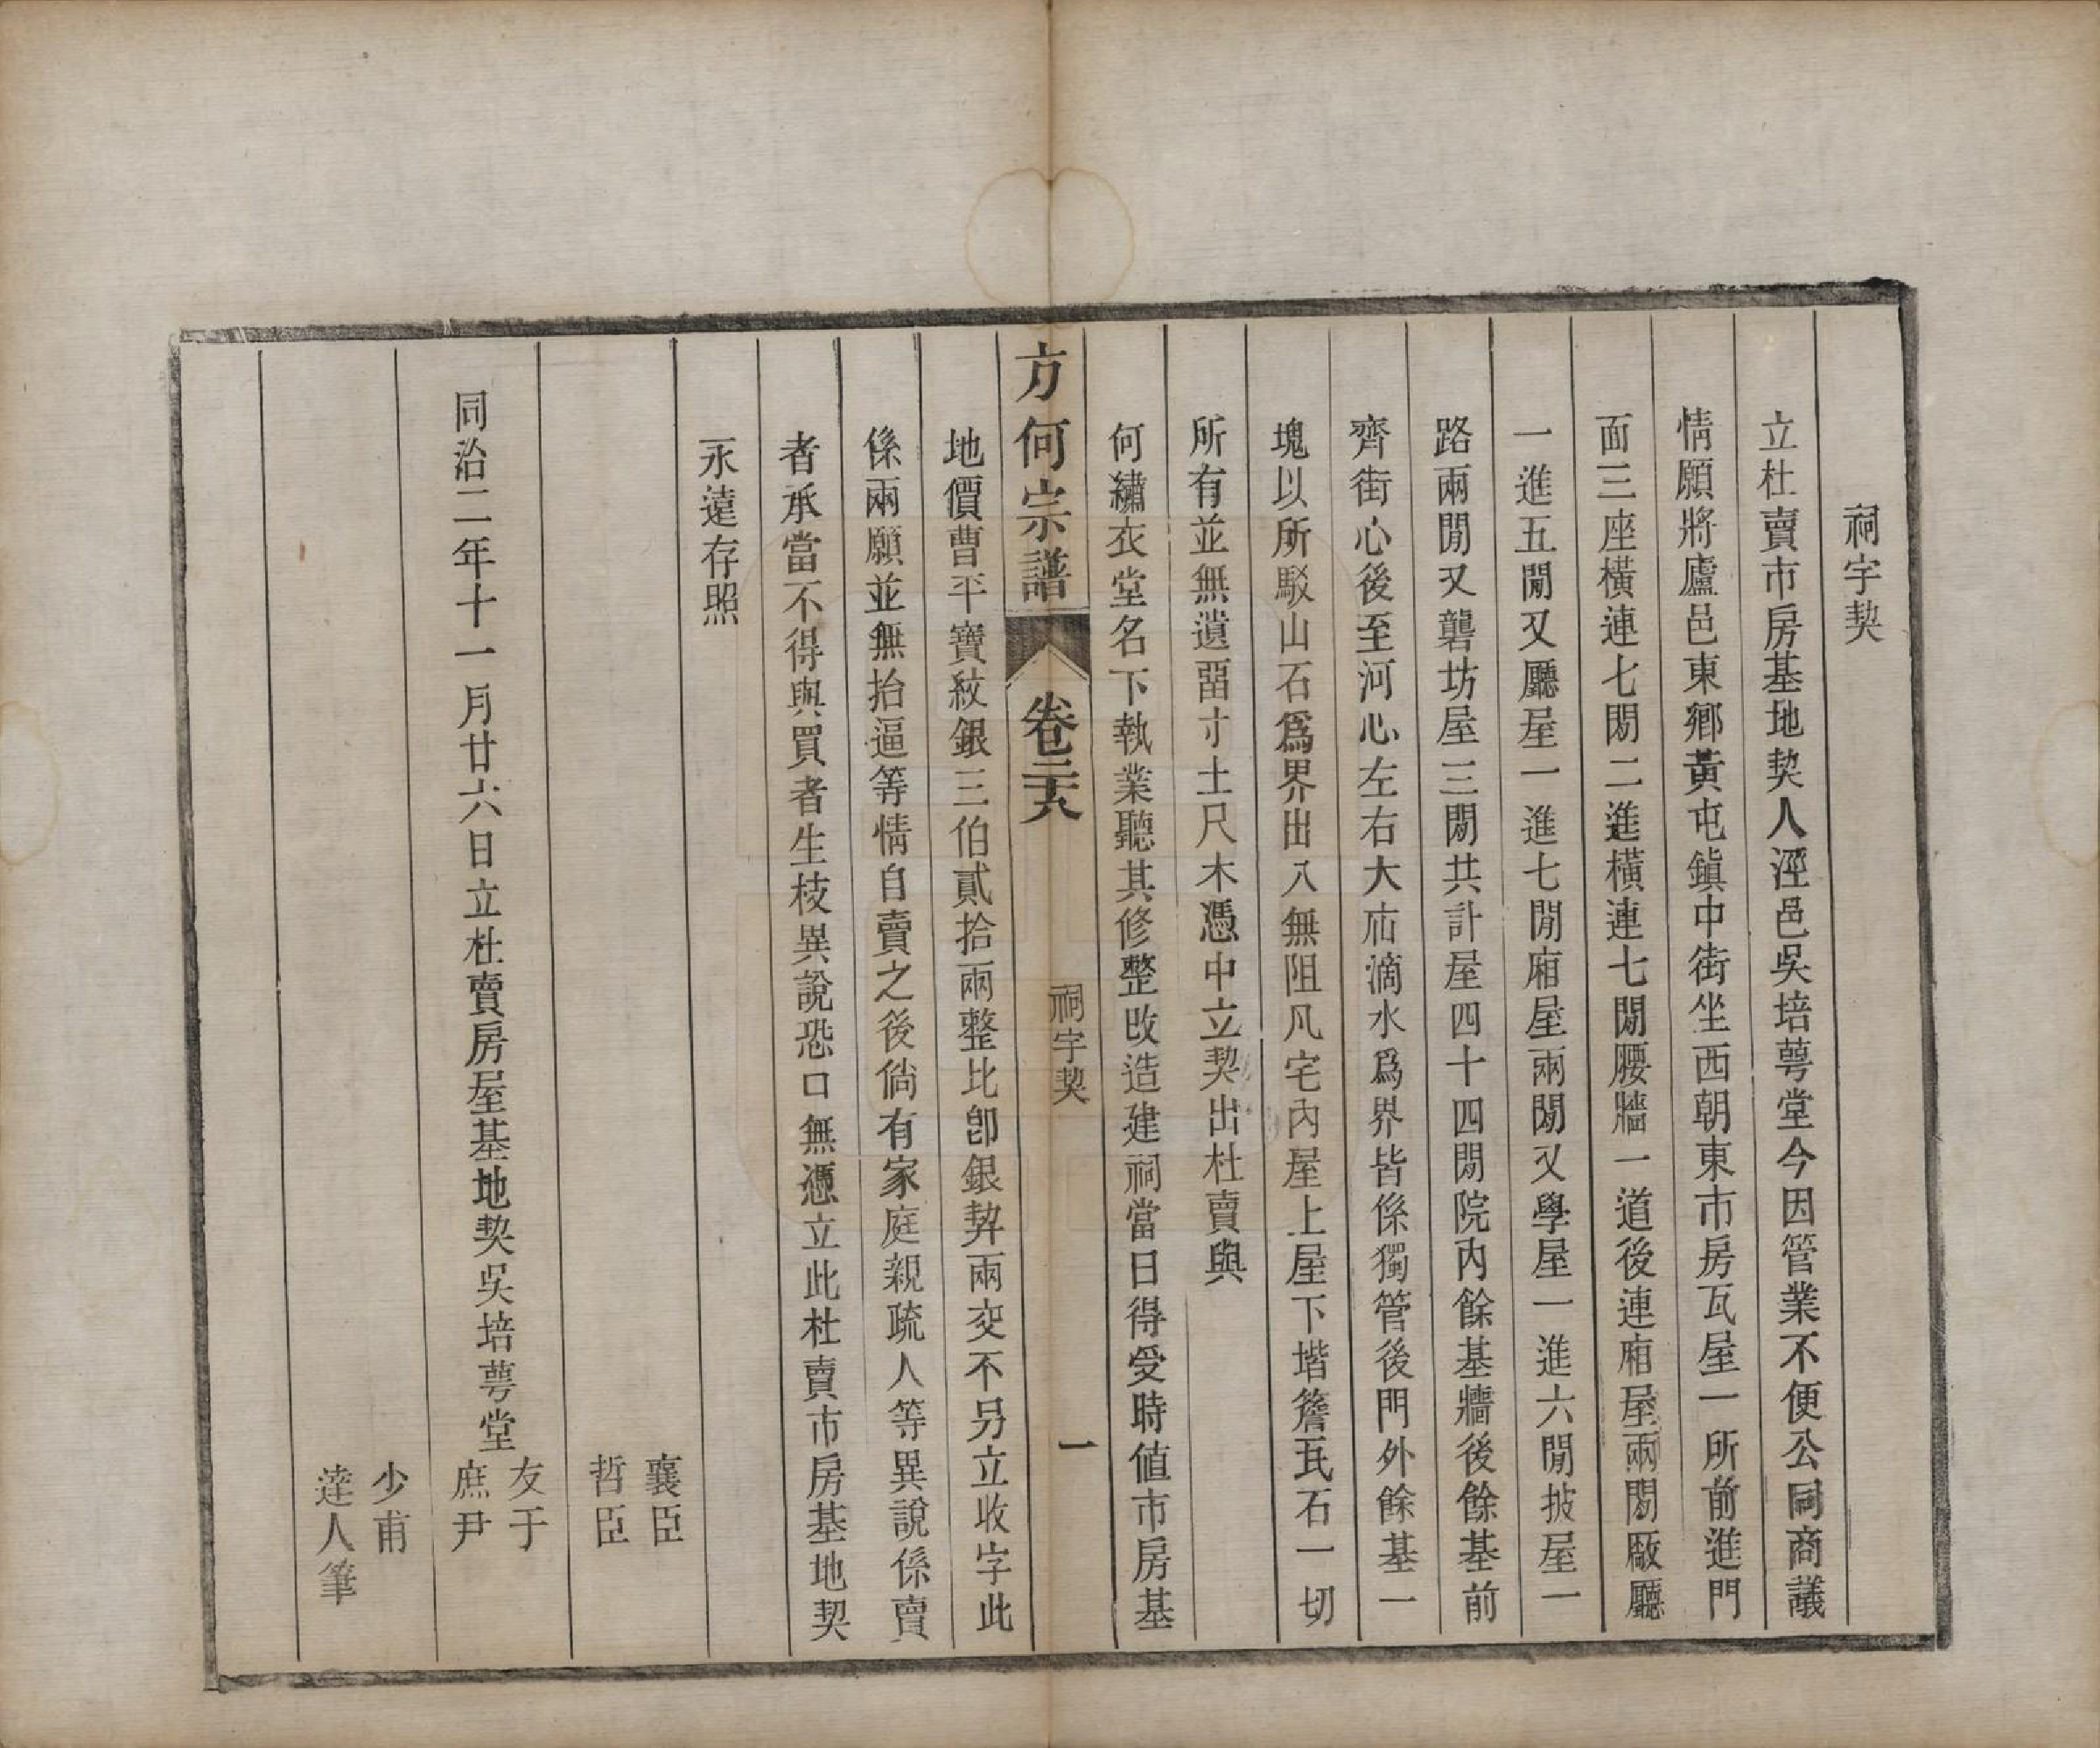 祠字契
立杜賣市房基地契人涇邑吳培萼堂今因管業不便公同商議
情願將廬邑東鄉黃屯鎮中街坐西朝東市房瓦屋一所前進門
面三座橫連七閒二進橫連七閒腰牆一道後連廂屋兩閒厰廳
一進五閒又廳屋一進七閒廂屋兩閒又學屋一進六閒披屋一
路兩閒又礱坊屋三閒共計屋四十四閒院內餘基牆後餘基前
齊街心後至河心左右大㡳滴水爲界皆係獨管後門外餘基一
塊以所駁山石爲界出入無阻凡宅內屋上屋下堦簷瓦石一切
所有並無遺畱寸土尺木憑中立契出杜賣與
何繡衣堂名下執業聽其修整改造建祠當日得受時值市房基
方何宗譜 卷三十六 祠字契 一
地價曹平寶紋銀三伯貳拾兩整比卽銀契兩交不另立收字此
係兩願並無抬逼等情自賣之後倘有家庭親疏人等異說係賣
者承當不得與買者生枝異說恐口無憑立此杜賣市房基地契
永遠存照
襄臣
哲臣
同治二年十一月廿六日立杜賣房屋基地契吳培萼堂
友于
庶尹
少甫
達人筆